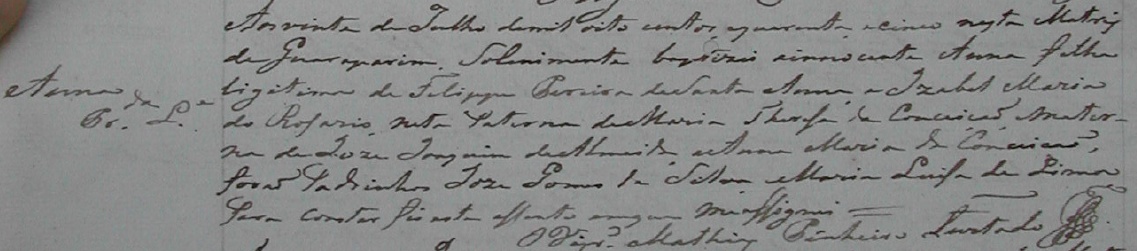 Aos vinte de Julho de mil oito centos, e quarenta, e cinco nesta Matriz
de Guaraparim, Solenimente baptizei a innocente Anna filha
Anna
legitima de Filippe Pereira de Santa Anna, e Izabel Maria
do Rosario, neta Paterna de Maria Thereza da Conceicaõ e mater-
na de Joze Joaquim de Almeida, e Anna Maria da Conceicaõ,
foraõ Padrinhos Joze Gomes da Silva e Maria Luisa de Lima
Para constar fis este assento em que me assignei
O Vigr.º Mathias Pinheiro Furtado